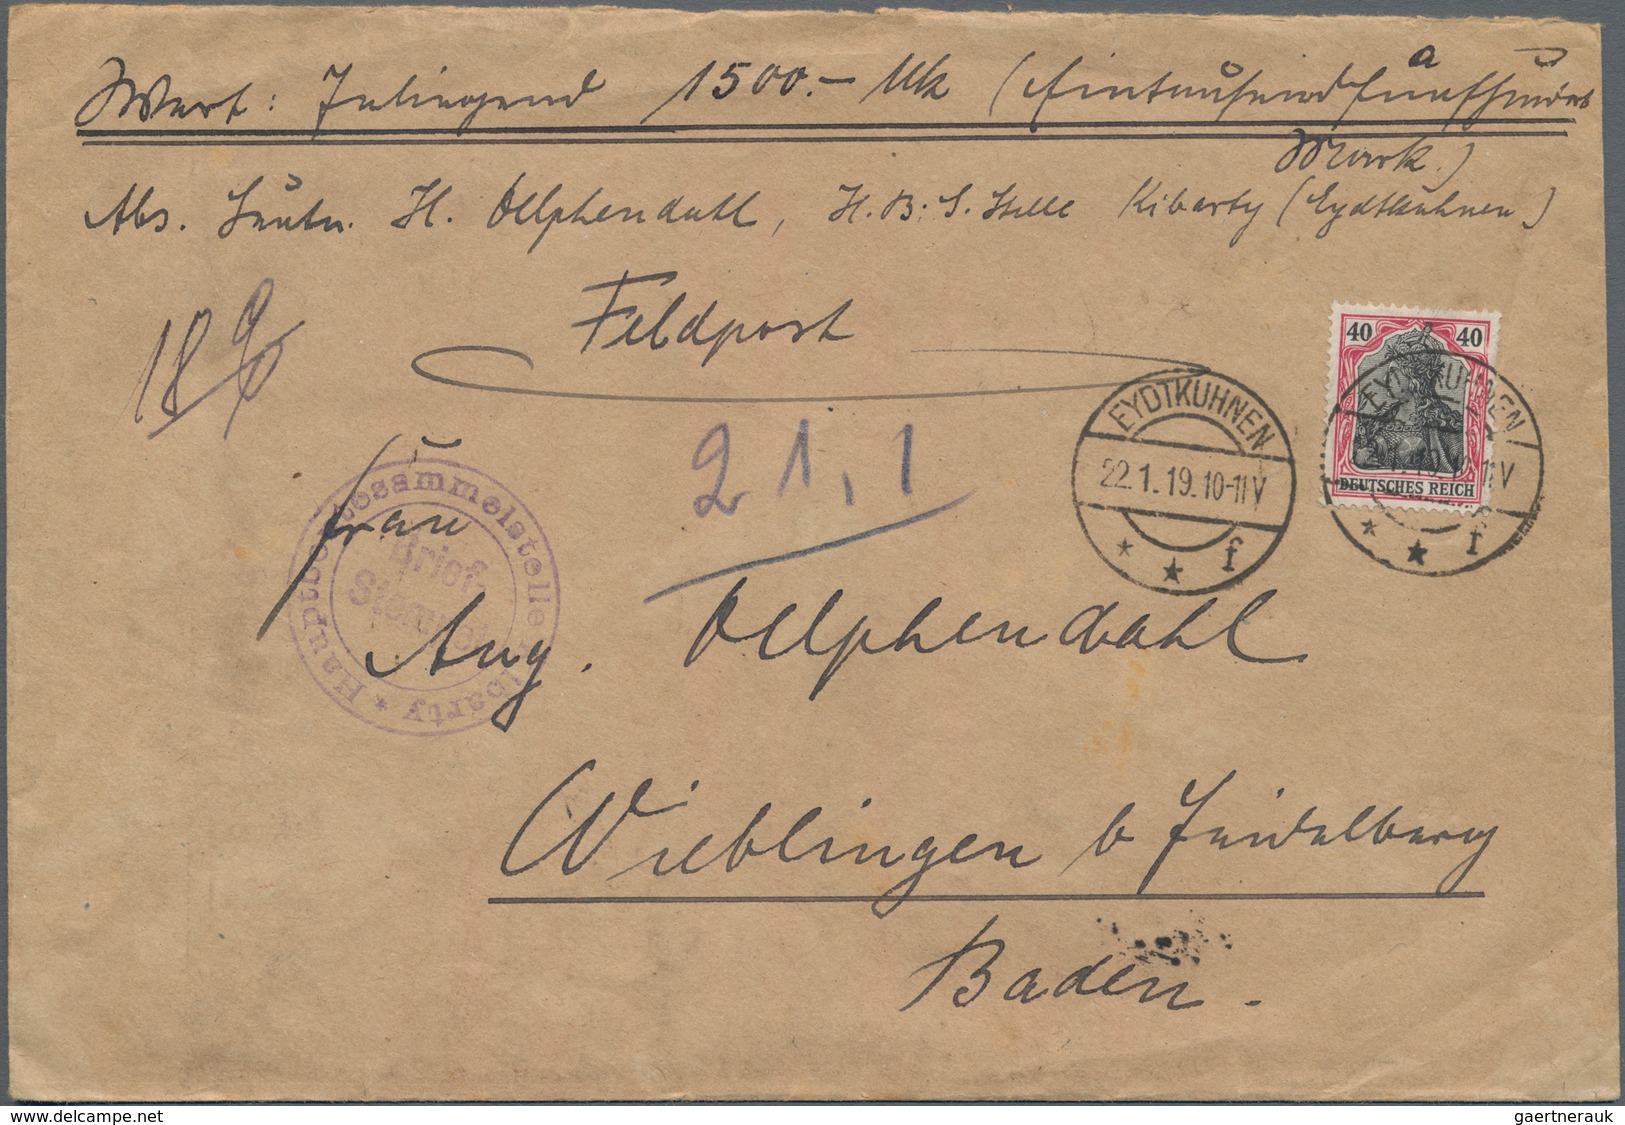 Wert: Inliegend 1500.- Mk (Eintausendfünfhundert
Mark.)
Abs. Leutn. H. Oelphendahl, H.B.S. Stelle Kibarty (Eydtkuhnen)
Feldpost
18 g
21,1
40 40
DEUTSCHES REICH
EYDTKUHNEN
22.1.19.10-11V
* * f
EYDTKUHNEN
* * f
Hauptbeutesammelstelle Kibarty *
Brief-
Stempel
Frau
Aug. Oelphendahl
Wieblingen b Heidelberg
Baden.
www.delcampe.net
gaertnerauk